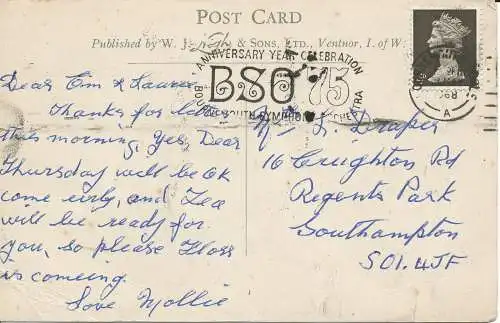 POST CARD
Published by W. J. Nigh & Sons, Ltd., Ventnor, I. of W.
ANNIVERSARY YEAR CELEBRATION
BSO 75
BOURNEMOUTH SYMPHONY ORCHESTRA
1968
A
Dear Em &
Thanks for
this morning, Yes, Dear
Thursday will be OK
come early, and Tea
will be ready for
you, so please
is comeing.
Love Mollie
L. Draper
16 Creighton Rd
Regents Park
Southampton
SO1.4JF